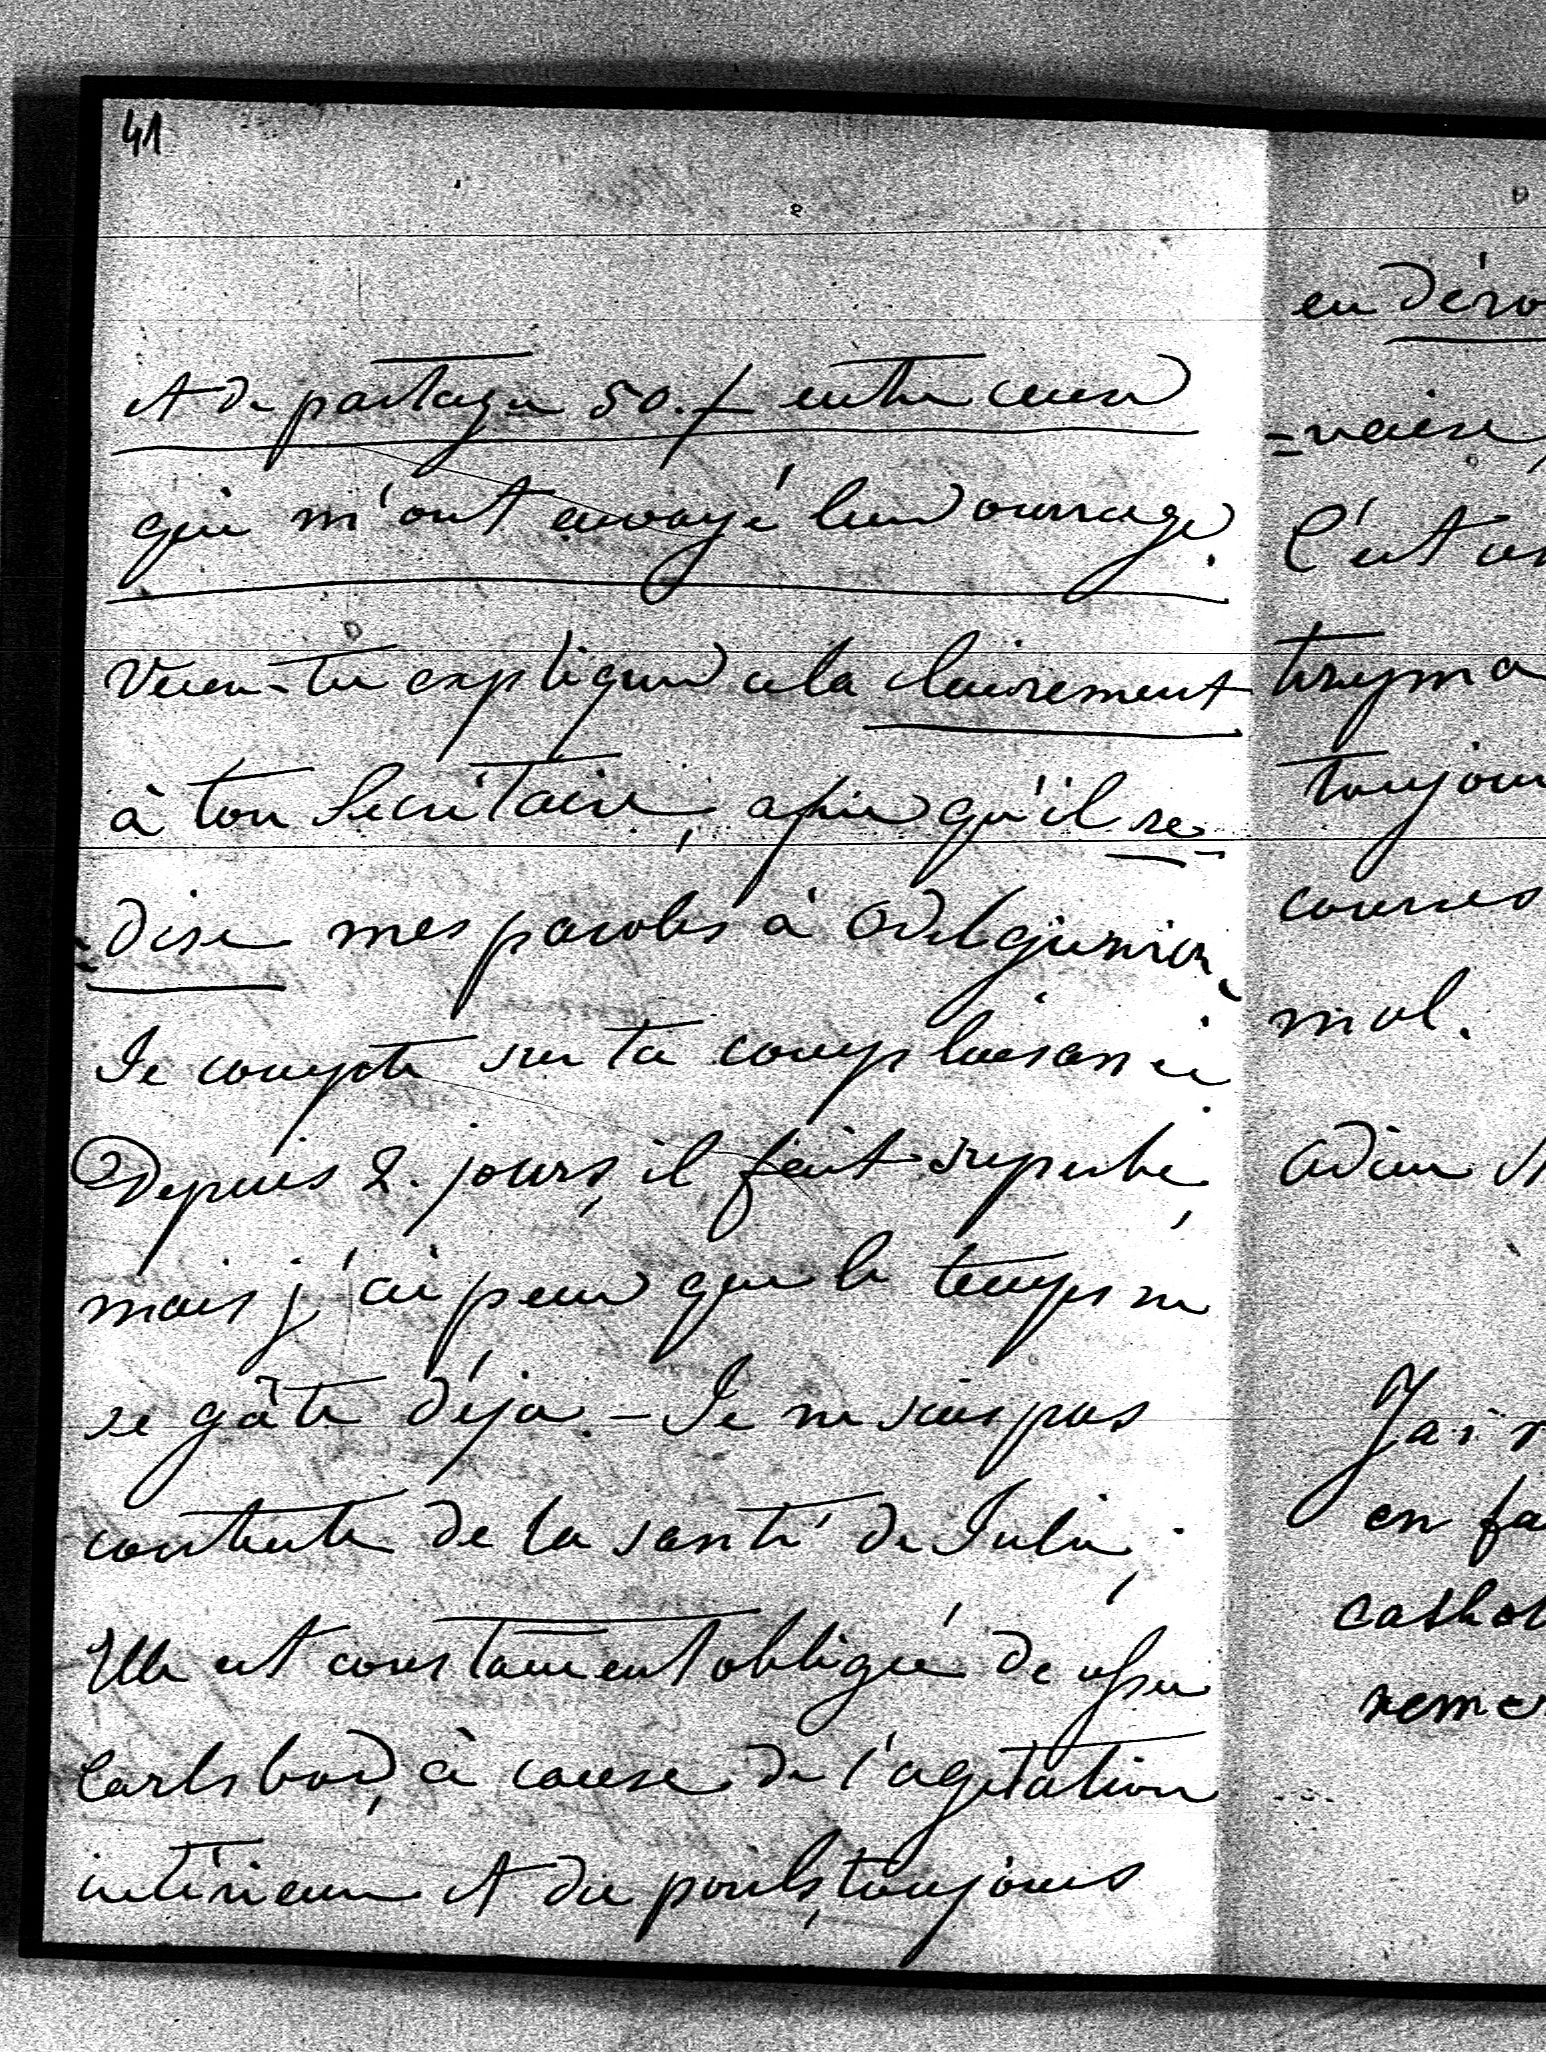 41
et de partager 50. f entre ceux
qui m'ont envoyé leur ouvrage.
Veux-tu expliquer cela clairement
à ton Secrétaire, afin qu'il re-
-dise mes paroles à
Je compte sur ta complaisance.
Depuis 2. jours, il fait superbe,
mais j'ai peur que le temps ne
se gâte déjà. – Je ne suis pas
contente de la santé de Julie,
Elle est constament obligée de
Carlsbad, à cause de l'agitation
intérieure et du pouls, toujours
en déro
-vaise
C'est un
toujour
courses
mal.
adieu
J'ai r
en fa
cathol
remer